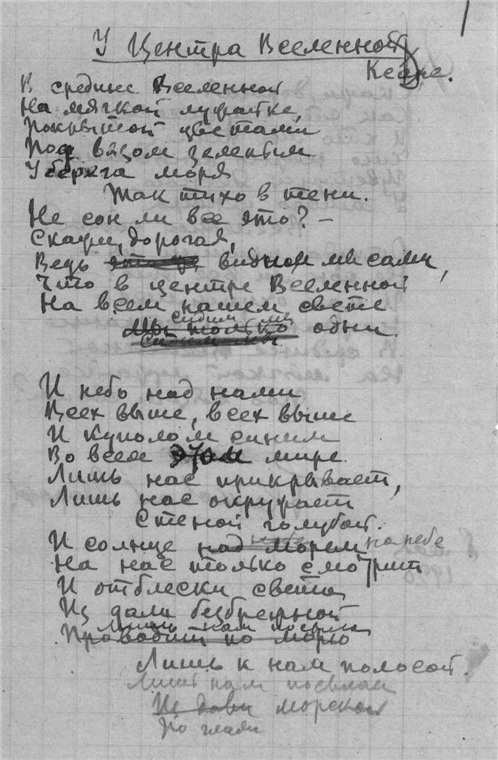 1
У Центра Вселенной
В средине Вселенной
На мягкой муравке,
Покрытой цветами
Под вязом зеленым
У берега моря
Так тихо в тени.
Не сон ли все это? –
Скажи, дорогая,
Ведь видном мы сами,
Что в центре Вселенной
На всем нашем свете
сидим мы
Мы только одни
И небо над нами
Всех выше, всех выше
И куполом синим
Во всем этом мире
Лишь нас прикрывает,
Лишь нас окружает
Стеной голубой.
И солнце над морем на небе
На нас только смотрит
И отблески света
Из дали безбрежной
Лишь нам посылая
Проводит по морю
Лишь к нам полосой.
Лишь нам посылая
Из дали морской
По глади